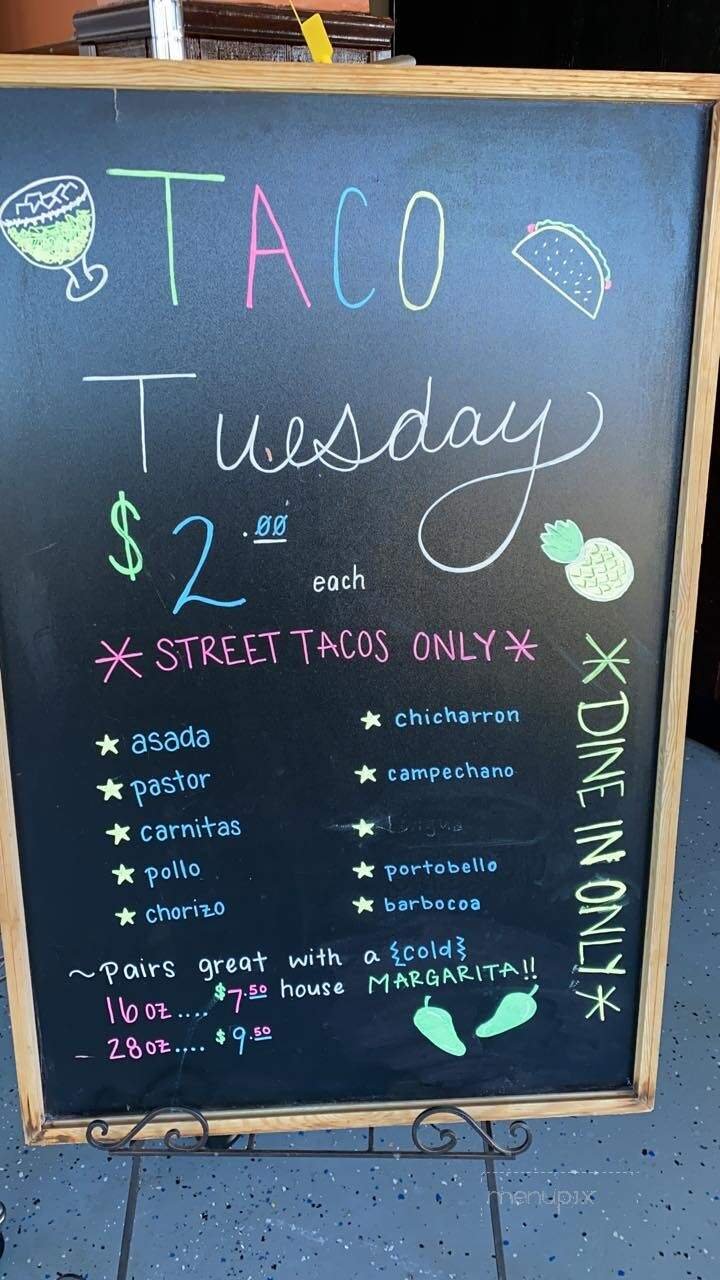 TACO
Tuesday
$2.00 each
* STREET TACOS ONLY *
asada
pastor
carnitas
pollo
chorizo
chicharron
campechano
portobello
barbocoa
* DINE IN ONLY *
~Pairs great with a {cold}
house MARGARITA!!
16oz.... $7.50
- 28oz.... $9.50
menupix